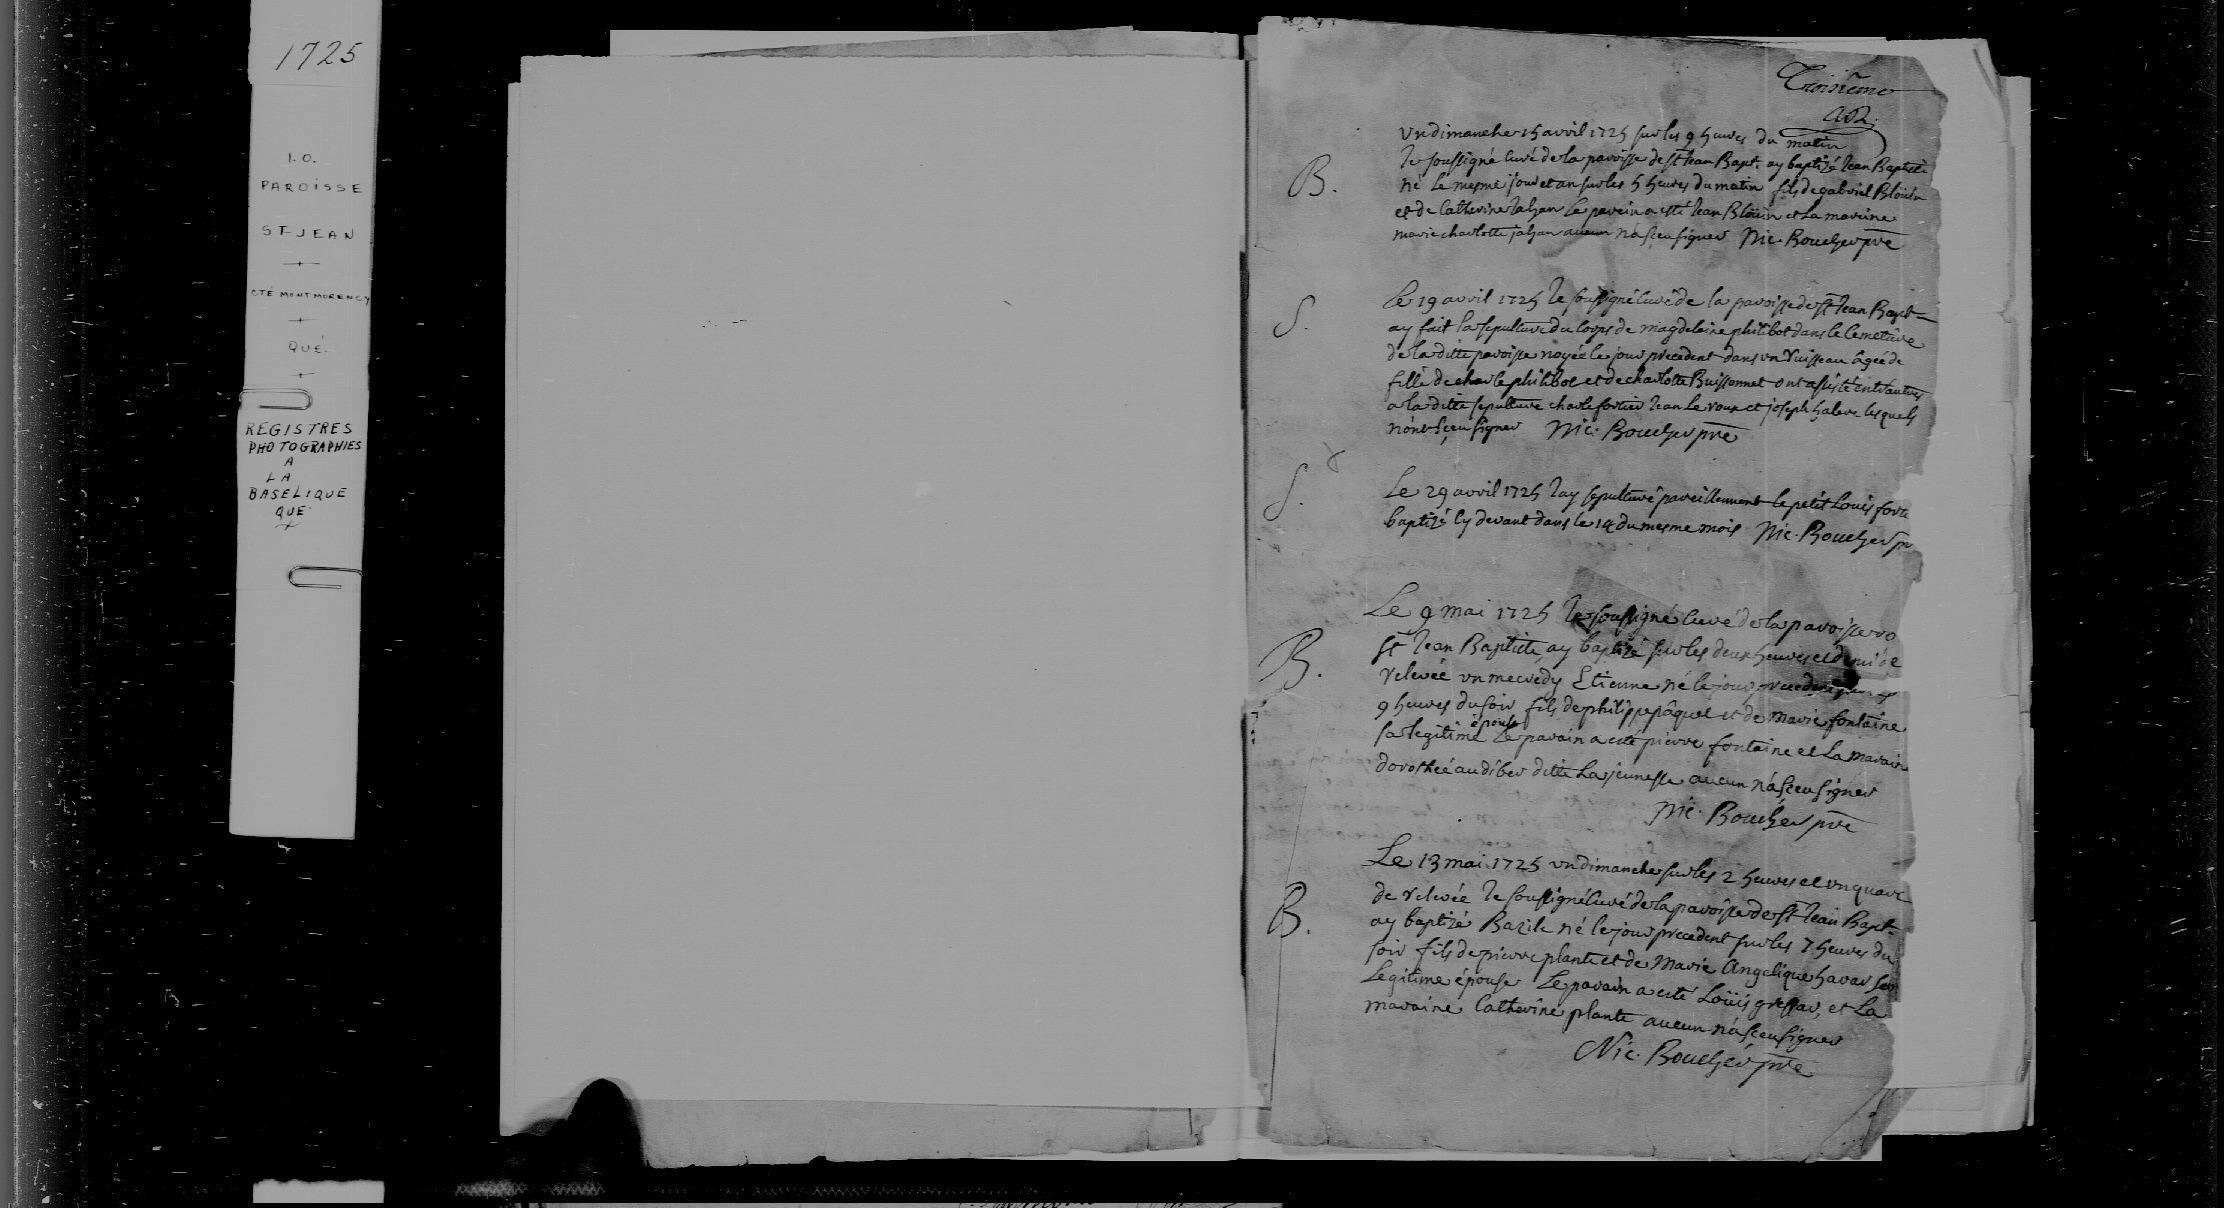 1725
I.O.
PAROISSE
ST-JEAN
CTÉ MONTMORENCY
QUÉ.
REGISTRES
PHOTOGRAPHIES
A
LA
BASELIQUE
QUE
Troisième
B.
un dimanche 15 avril 1725 sur les 9 heures du matin
Je soussigné curé de la paroisse de St Jean Bapt. ay baptizé Jean Baptiste
né le mesme jour et an sur les 5 heures du matin fils de gabriel Bloüin
et de Catherine Jahan le parein a esté Jean Bloüin et la mareine
marie charlotte jahan aucun n'a sceu signer Nic. Boucher pre
S.
Le 19 avril 1725 Je soussigné curé de la paroisse de St Jean Bapt
ay fait la sepulture du corps de magdelaine philibot dans le Cemetiere
de la ditte paroisse noyée le jour precedent dans un ruisseau âgée de
fille de charle philibot et de charlotte Buissonnet ont assisté entr'autres
a la ditte sepulture charle fortier Jean Le roux et joseph halere lesquels
n'ont sceu signer Nic. Boucher pre
S.
Le 29 avril 1725 J'ay sepulturé pareillement le petit Louis forti
baptizé cy devant dans le 14 du mesme mois Nic. Boucher pr
B.
Le 9 mai 1725 Je soussigné curé de la paroisse
St Jean Baptiste ay baptizé sur les deux heures et demi de
relevée un mecredy Etienne né le jour precedent
9 heures du soir fils de philippe pâquet et de Marie fontaine
sa legitime épouse Le parain a esté pierre fontaine et La marain
dorothée audiber ditte Lajeunesse aucun n'a sceu signer
Nic. Boucher pre
B.
Le 13 mai 1725 un dimanche sur les 2 heures et un quart
de relevée Je soussigné curé de la paroisse de St Jean Bapt
ay baptizé Bazile né le jour precedent sur les 7 heures du
soir fils de pierre plante et de Marie Angelique havar son
Legitime épouse Le parain a esté Loüis gressar, et La
maraine Catherine plante aucun n'a sceu signer
Nic. Boucher pre